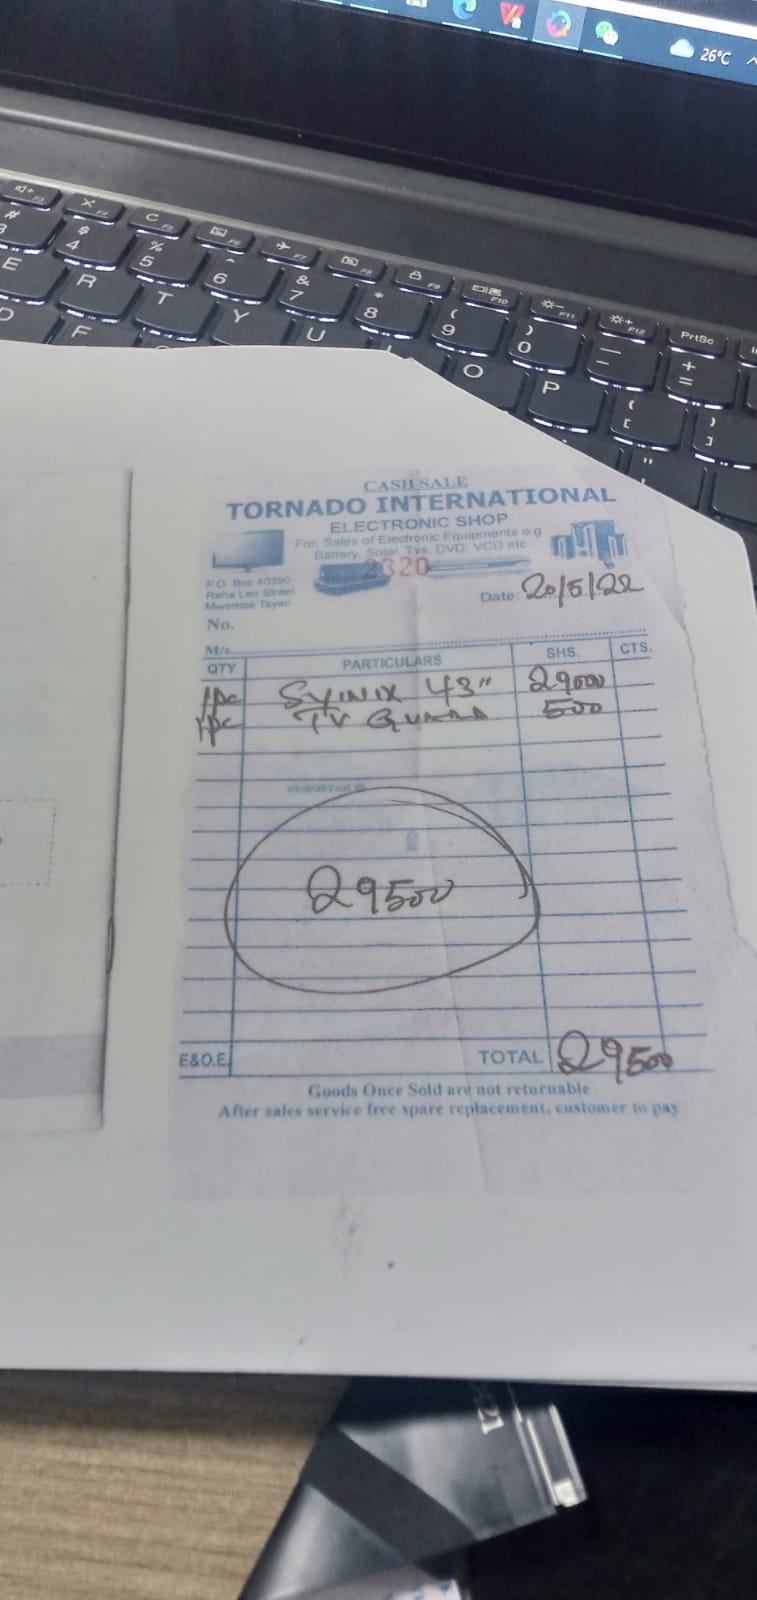 26°C
F2 F3 F4 F5 F6 F7 F8 F9 F10 F11 F12 PrtSc
# 3 $ 4 % 5 ^ 6 & 7 * 8 ( 9 ) 0 — - + =
E R T Y U I O P { [ } ]
D F "
CASH SALE
TORNADO INTERNATIONAL
ELECTRONIC SHOP
For: Sales of Electronic Equipments e.g
Battery, Solar, Tvs, DVD, VCD etc
2320
P.O. Box 40390
Raha Leo Street
Mwembe Tayari
Date: 20/5/22
No.
M/s
QTY PARTICULARS SHS. CTS.
1pc SYINIX 43" 29000
1pc TV GUARD 500
29500
E&O.E. TOTAL 29500
Goods Once Sold are not returnable
After sales service free spare replacement, customer to pay